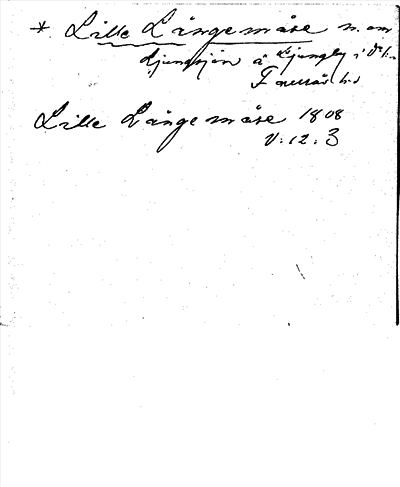 * Lille Långemåse n. om
Ljungsjön å Ljungby i
Faurås hd
Lille Långemåse 1808
V: 12: 3